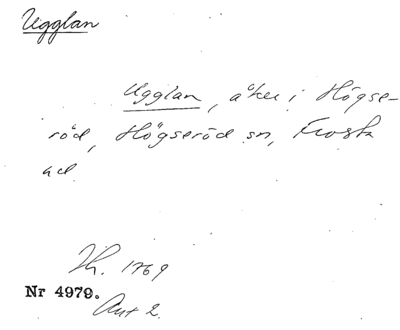 Ugglan
Ugglan, åker i Högse-
röd, Högseröd sn, Frosta
hd.
Th. 1769
Nr 4979.
Ant 2.